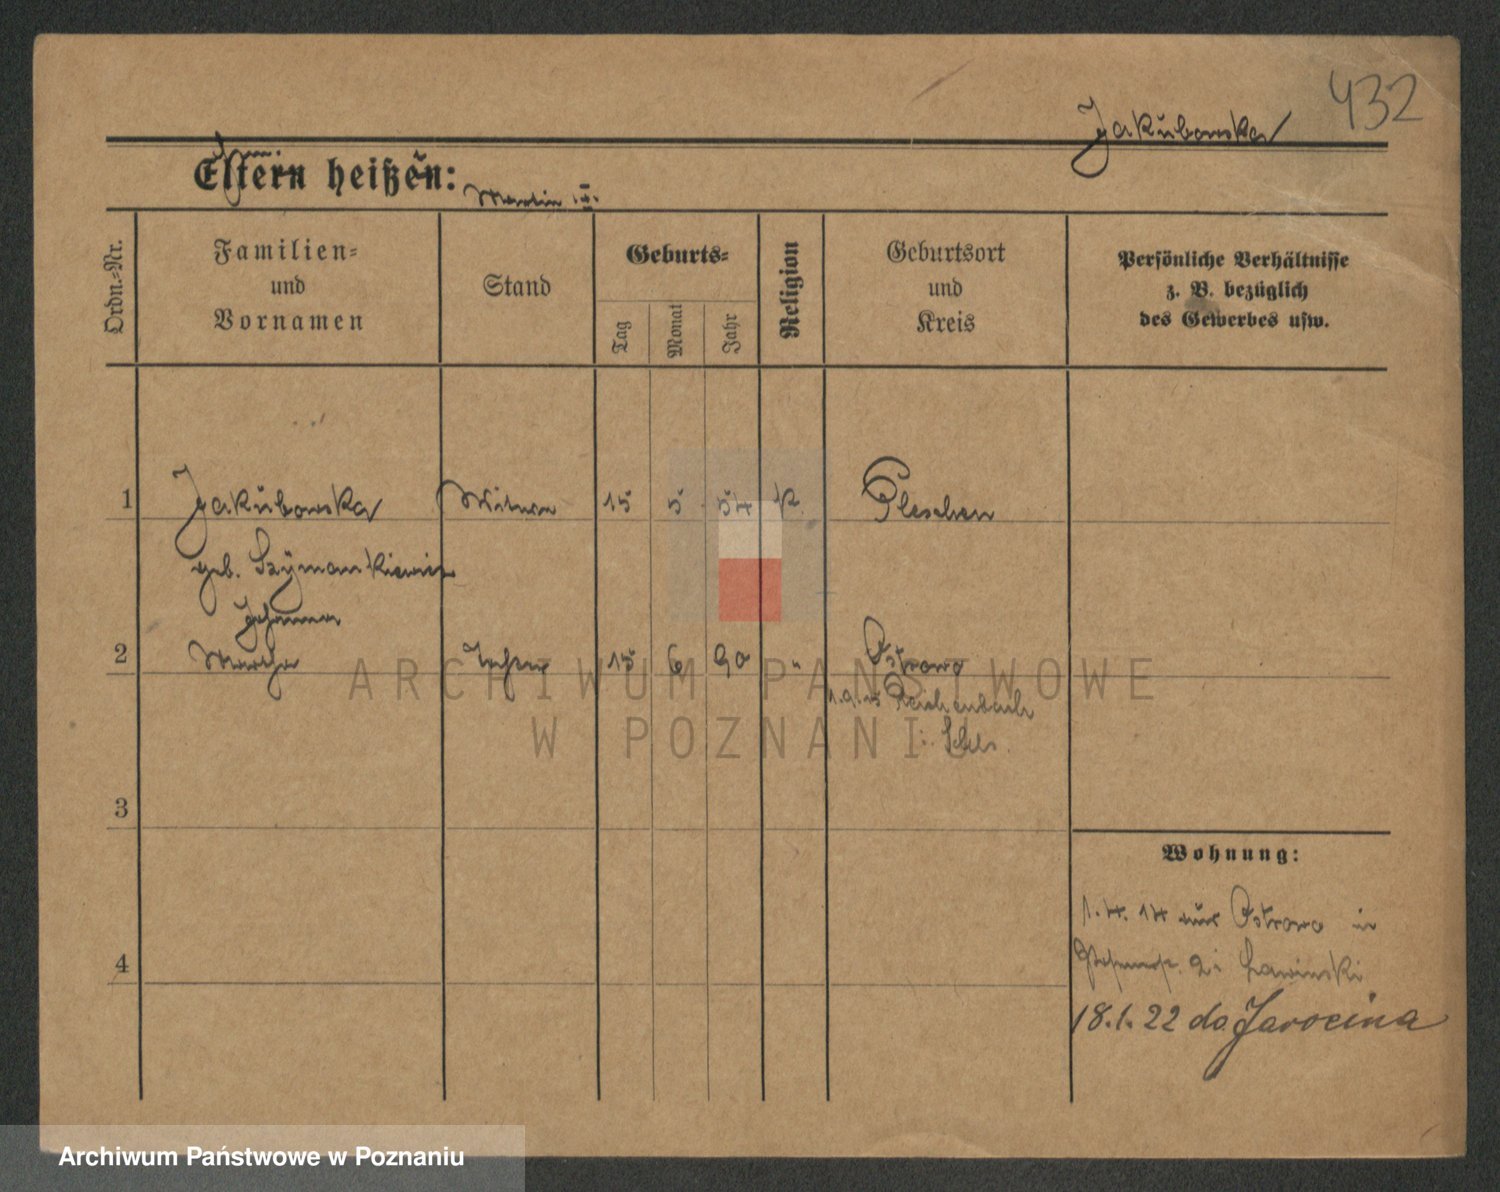 432
Jakubowska
Eltern heißen:
Ordn.-Nr.
Familien-
und
Vornamen
Stand
Geburts-
Tag
Monat
Jahr
Religion
Geburtsort
und
Kreis
Persönliche Verhältnisse
z. B. bezüglich
des Gewerbes usw.
1 Jakubowska Witwe 15 5 54 k. Pleschen
geb. Szymankiewicz
Johanna
2 Martha Tochter 15 6 90 " Ostrowo
1.9.15 Reichenbach
i. Schls.
3
Wohnung:
1.4.14 aus Ostrowo in
4
bei Lawinski
18.1.22 do Jarocina
ARCHIWUM PAŃSTWOWE
W POZNANIU
Archiwum Państwowe w Poznaniu